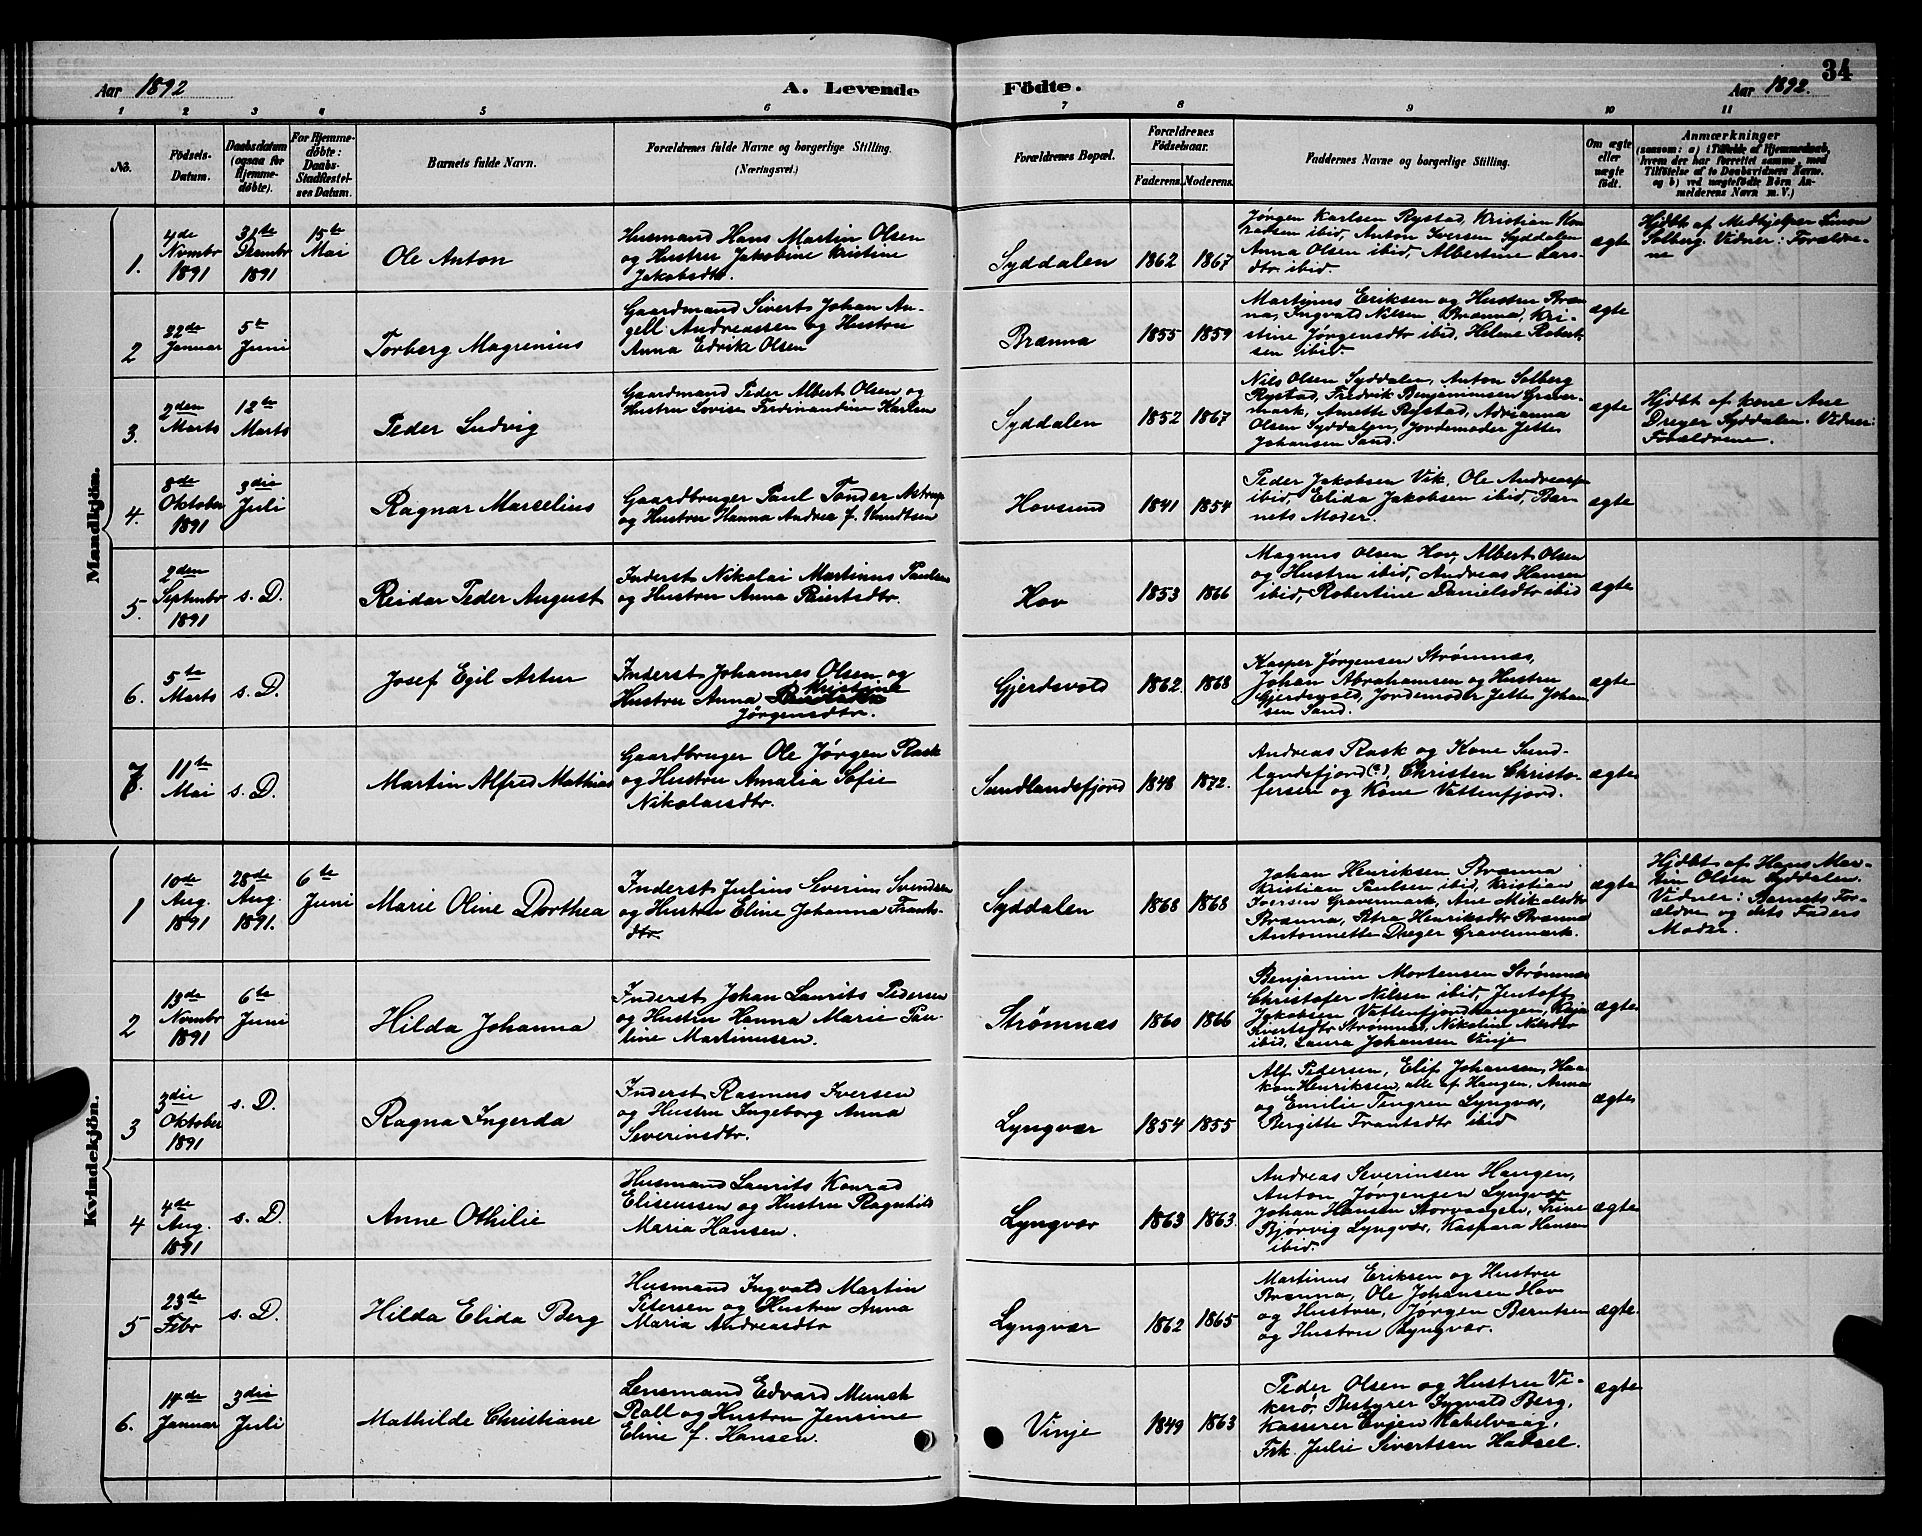 34
Aar 1892
A. Levende
Födte.
Aar 1892.
1 2 3 4 5 6 7 8 9 10 11
No.
Födsels-
Datum.
Daabsdatum
(ogsaa for
Hjemme-
döbte).
For Hjemme-
döbte:
Daabs-
Stadfæstel-
ses Datum.
Barnets fulde Navn.
Forældrenes fulde Navne og borgerlige Stilling.
(Næringsvei.)
Forældrenes Bopæl.
Forældrenes
Födselsaar.
Faderens. Moderens.
Faddernes Navne og borgerlige Stilling.
Om ægte
eller
uægte
födt.
Anmærkninger
(saasom: a) i Tilfælde af Hjemmedaab,
hvem der har forrettet samme, med
Tilföielse af to Daabsvidners Navne,
og b) ved uægtefödte Börn An-
melderens Navn m. V.)
Mandkjön.
1.
4de
Novmbr
1891
31te
Dsembr
1891
15te
Mai
Ole Anton
Husmand Hans Martin Olsen
og Hustru Jakobine Kristine
Jakobsdtr.
Syddalen
1862
1867
Jørgen Karlsen Rystad, Kristian Kon
radsen ibid, Anton Iversen Syddalen
Anna Olsen ibid, Albertine Lars-
dtr ibid.
ægte
Hjdbt af Medhjelper Simon
Solberg. Vidner: Forældre-
ne
2
22de
Januar
5te
Juni
Torberg Magrenius
Gaardmand Sivert Johan An-
gell Andreassen og Hustru
Anna Edvike Olsen
Brænna
1855
1859
Martinus Eriksen og Hustru Bræn
na, Ingvald Nilsen Brænna, Kri-
stine Jørgensdtr ibid, Helene Robert-
sen ibid.
ægte
3.
2den
Marts
12te
Marts
Peder Ludvig
Gaardmand Peder Albert Olsen og
Hustru Lovise Ferdinandine Karlsen
Syddalen
1852
1867
Nils Olsen Syddalen, Anton Solberg
Rystad, Fredrik Benjaminsen Graver-
mark, Anette Rystad, Adrianna
Olsen Syddalen, Jordemoder Jette
Johansen Sand.
ægte
Hjdbt af Kone Ane
Dreyer Syddalen. Vidner:
Forældrene.
4.
8de
Oktober
1891
3die
Juli
Ragnar Marselius
Gaardbruger Paul Tønder Astrup
og Hustru Hanna Andrea f. Knudtsen
Hovsund
1841
1854
Peder Jakobsen Vik, Ole Andreas
ibid, Elida Jakobsen ibid, Bar-
nets Moder.
ægte
5.
2den
Septmbr
1891
s. D.
Reidar Peder August
Inderst Nikolai Martinus Paulsen
og Hustru Anna
Hov
1853
1866
Magnus Olsen Hov, Albert Olsen
og Hustru ibid, Andreas Hansen
ibid, Robertine Danielsdtr ibid
ægte
6.
5te
Marts
s. D.
Josef Egil Artur
Inderst Johannes Olsen og
Hustru Anna Kristine
Jørgensdtr.
Gjerdsvold
1862.
1868
Kasper Jørgensen Strømnæs,
Johan Abrahamsen og Hustru
Gjerdsvold, Jordemoder Jette Johan
sen Sand.
ægte
7.
11te
Mai
s. D.
Martin Alfred Mathias
Gaardbruger Ole Jørgen Rask
og Hustru Amalia Sofie
Nikolaisdtr.
Sundlandsfjord
1848
1872.
Andreas Rask og Kone Sund-
landsfjord(?), Christen Christo-
fersen og Kone Vattenfjord.
ægte
Kvindekjön.
1
10de
Aug.
1891
28de
Aug.
1891.
6te
Juni
Marie Oline Dorthea
Inderst Julius Severin Svendsen
og Hustru Eline Johanna Frants-
dtr.
Syddalen
1868
1868
Johan Henriksen Brænna
Kristian Paulsen ibid, Kristian
Iversen Gravermark, Ane Mikalsdtr
Brænna, Petra Henriksdtr Brænna
Antonnette Dreyer Gravermark.
ægte
Hjdbt af Hans Mar-
tin Olsen Syddalen.
Vidner: Barnets For-
ældre og dets Faders
Moder.
2
13de
Novmbr
1891
6te
Juni
Hilda Johanna
Inderst Johan Laurits Pedersen
og Hustru Hanna Marie Pau-
line Martinusen.
Strømnæs
1860
1866
Benjamin Mortensen Strømnæs
Christofer Nilsen ibid, Jentoft
Jakobsen Vattenfjordhaugen, Kaja
Sivertsdtr Strømnæs, Nikoline Nilsdtr
ibid, Laura Johansen Vinje
ægte
3
3die
Oktober
1891
s. D.
Ragna Ingerda
Inderst Rasmus Iversen
og Hustru Ingeborg Anna
Severinsdtr.
Lyngvær
1854
1855
Alf Petersen, Elif Johansen, Haa-
kon Henriksen, alle af Haugen, Anna
og Emilie Tengren Lyngvær,
Bergitte Frantsdtr ibid
ægte
4
4de
Aug.
1891
s. D.
Anne Othilie
Husmand Laurits Konrad
Eliseussen og Hustru Ragnhild
Maria Hansen.
Lyngvær
1863
1863.
Andreas Severinsen Haugen,
Anton Jørgensen Lyngvær
Johan Hansen Storvaagen, Trine
Bjørvig Lyngvær, Kaspara Hansen
ibid.
ægte
5
23de
Febr
s. D.
Hilda Elida Berg
Husmand Ingvald Martin
Petersen og Hustru Anna
Maria Andreasdtr
Lyngvær
1862
1865
Martinus Eriksen og Hustru
Brænna, Ole Johansen Hov
og Hustru, Jørgen Berntsen
og Hustru Lyngvær.
ægte.
6.
14de
Januar
3die
Juli
Mathilde Christiane
Lensmand Edvard Munch
Rall og Hustru Jensine
Eline f. Hansen.
Vinje
1849
1863
Peder Olsen og Hustru Vi-
kerø, Bestyrer Ingvald Berg,
Kasserer Evjen Kabelvaag,
Frk. Julie Sivertsen Hadsel.
ægte